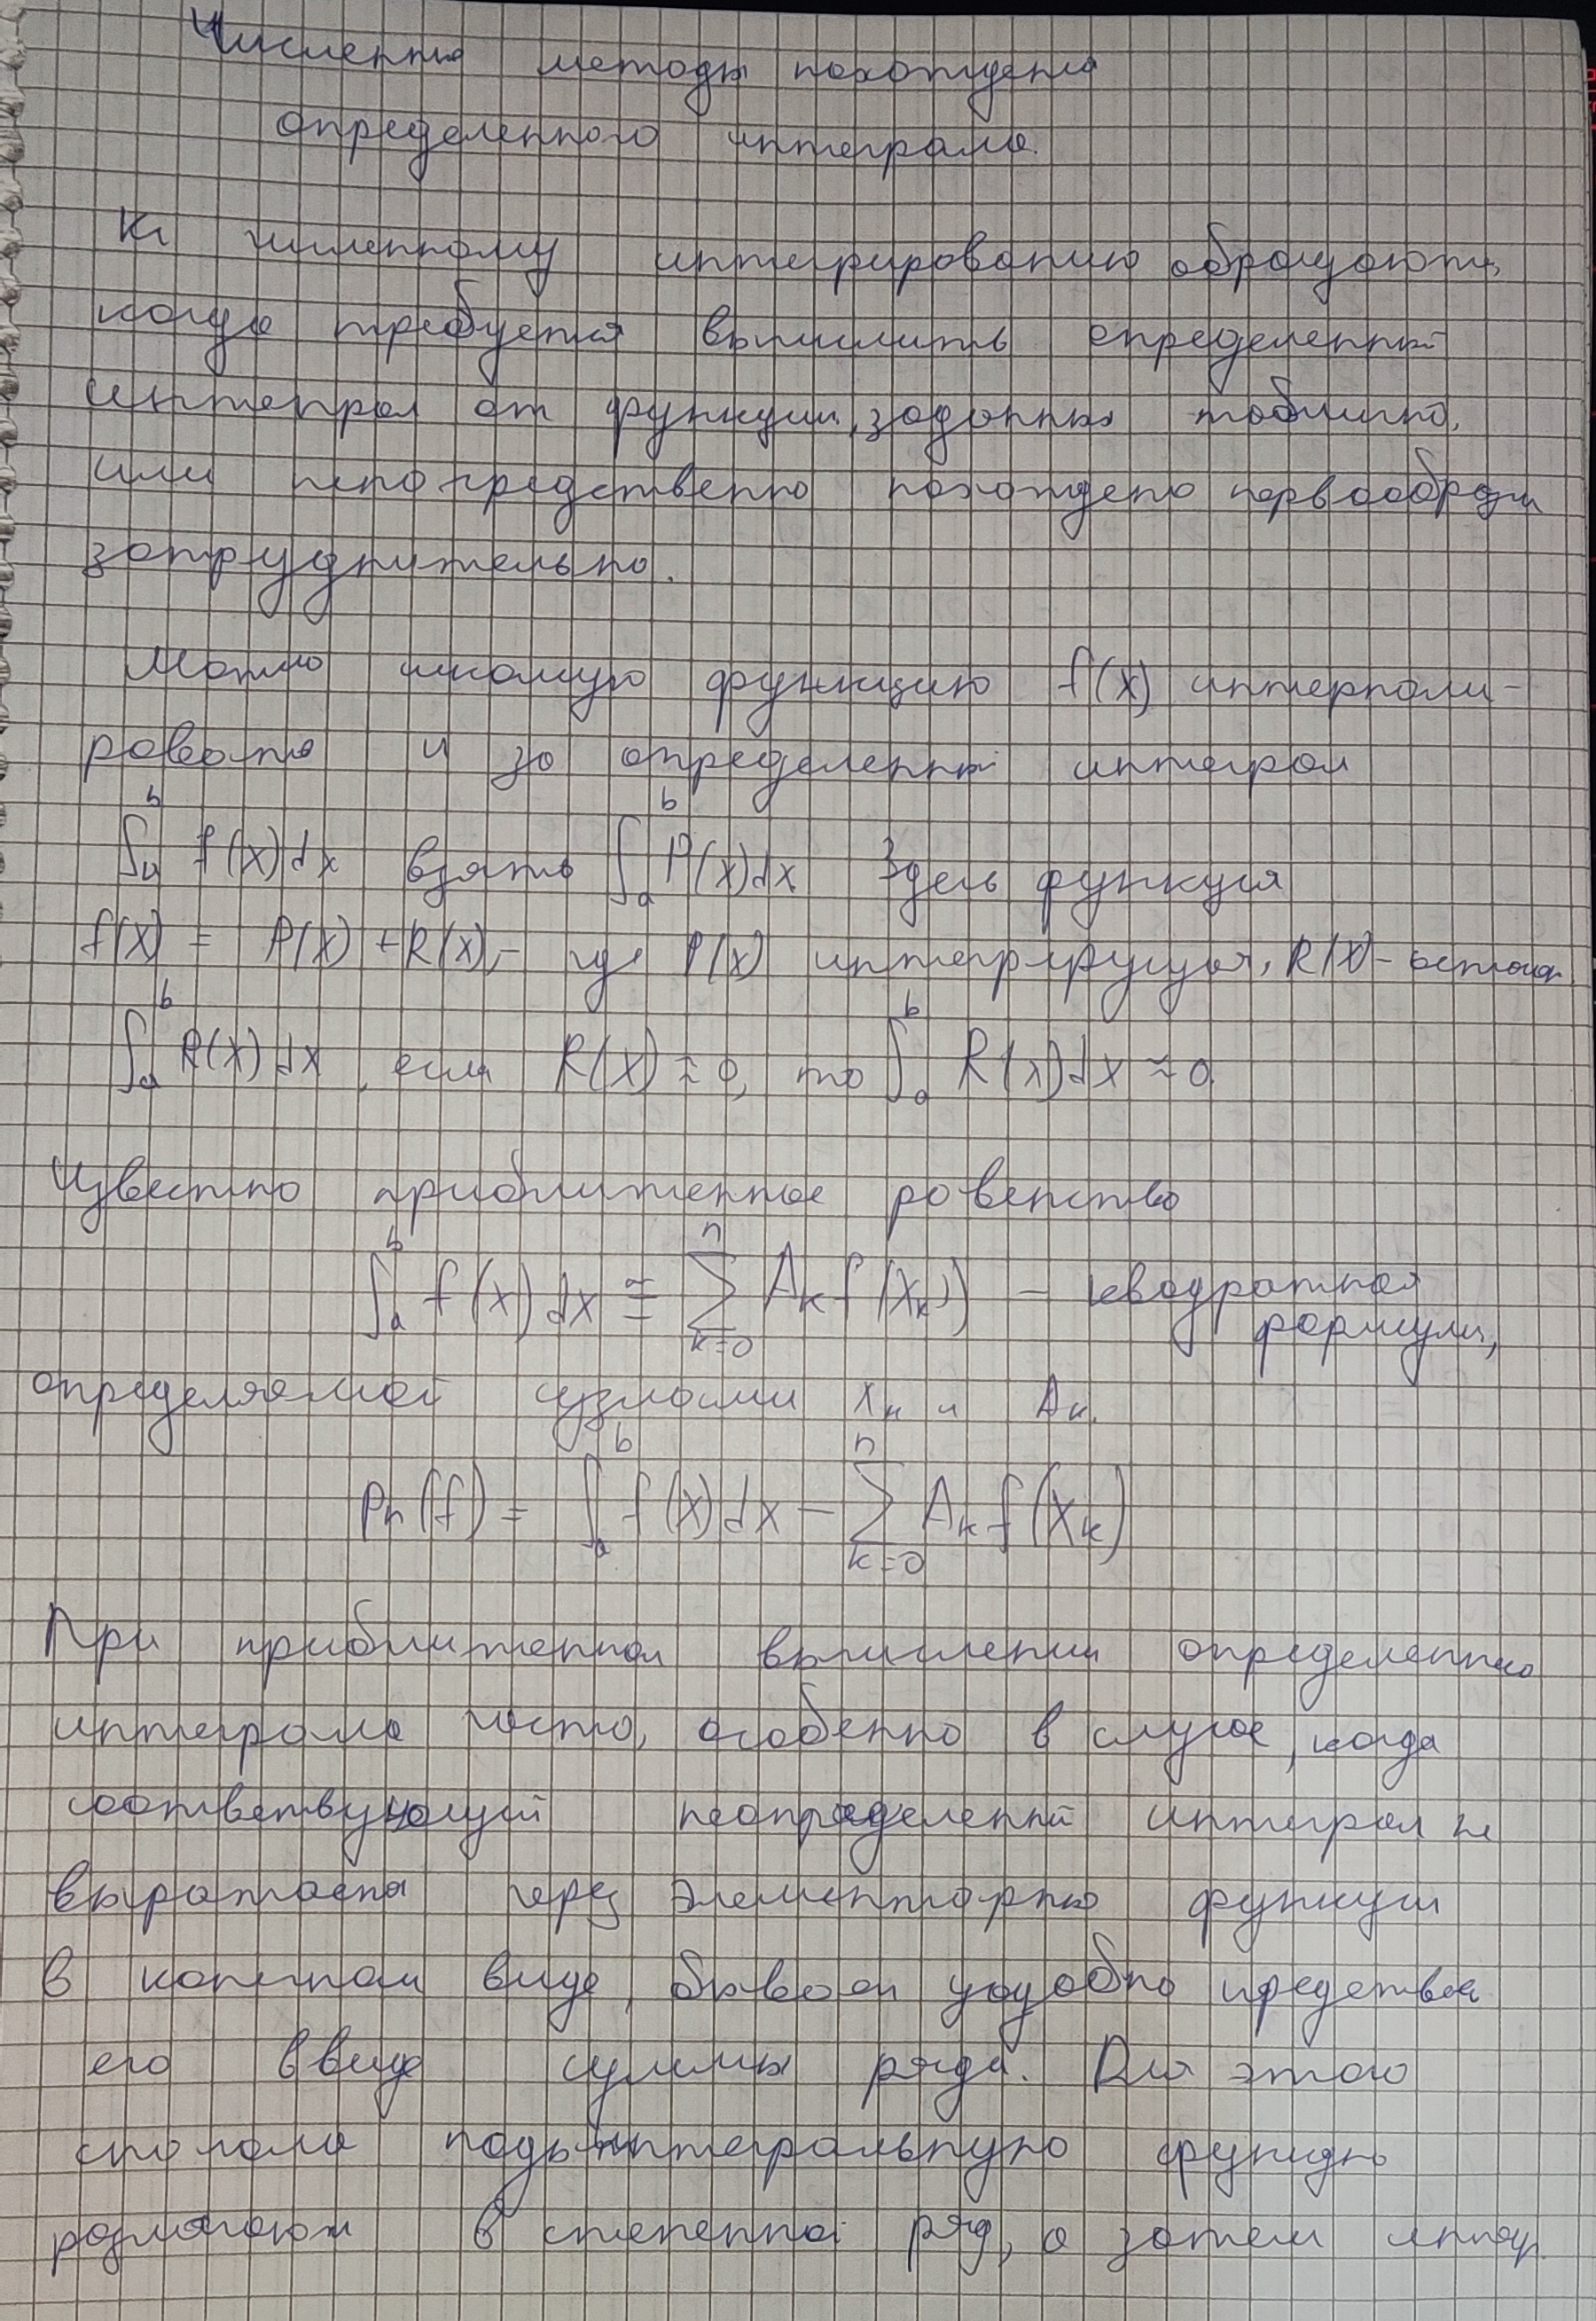 Численные методы нахождения
определенного интеграла.
К численному интегрированию обращаются,
когда требуется вычислить определенный
интеграл от функции, заданных таблично,
или непосредственно нахождено первообразн
затруднительно.
Можно искомую функцию f(x) интерполи-
ровать и за определенный интеграл
∫ₐᵇ f(x)dx взять ∫ₐᵇ P(x)dx Здесь функция
f(x) = P(x) + R(x), – где P(x) интегрирующая, R(x) – остаточ.
∫ₐᵇ R(x)dx, если R(x) ≈ 0, то ∫ₐᵇ R(x)dx ≈ 0.
Известно приближенное равенство
∫ₐᵇ f(x)dx ≅ ∑ₖ₌₀ⁿ Aₖ f(xₖ) – квадратная
формула,
определяемой узлами xₖ и Aₖ.
Pₙ(f) = ∫ₐᵇ f(x)dx – ∑ₖ₌₀ⁿ Aₖ f(xₖ)
При приближенном вычислении определенного
интеграла часто, особенно в случае, когда
соответствующий неопределенный интеграл не
выражается через элементарные функции
в конечном виде, бывает удобно представ
его в виде суммы ряда. Для этого
сначала подынтегральную функцию
разлагают в степенной ряд, а затем